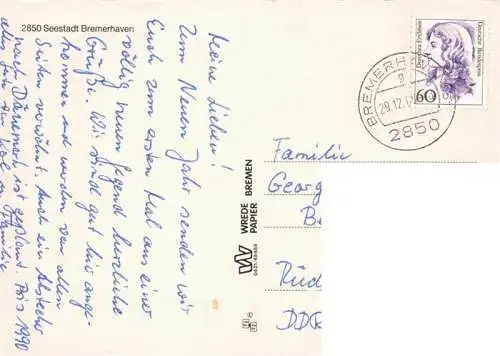 2850 Seestadt Bremerhaven
Meine Lieben!
Zum Neuen Jahr senden wir
Euch zum ersten Mal aus einer
völlig neuen Gegend herzliche
Grüße. Wir sind gut hier ange-
kommen und werden von allen
Seiten verwöhnt. Auch ein Abstecher
nach Dänemark ist geplant. Bis 1990
alles Gute
Familie
WREDE
PAPIER
BREMEN
0421-46484
BREMERH
29.12.
2850
Deutsche Bundespost
60
Familie
Georg
Be
Rüd
DDR